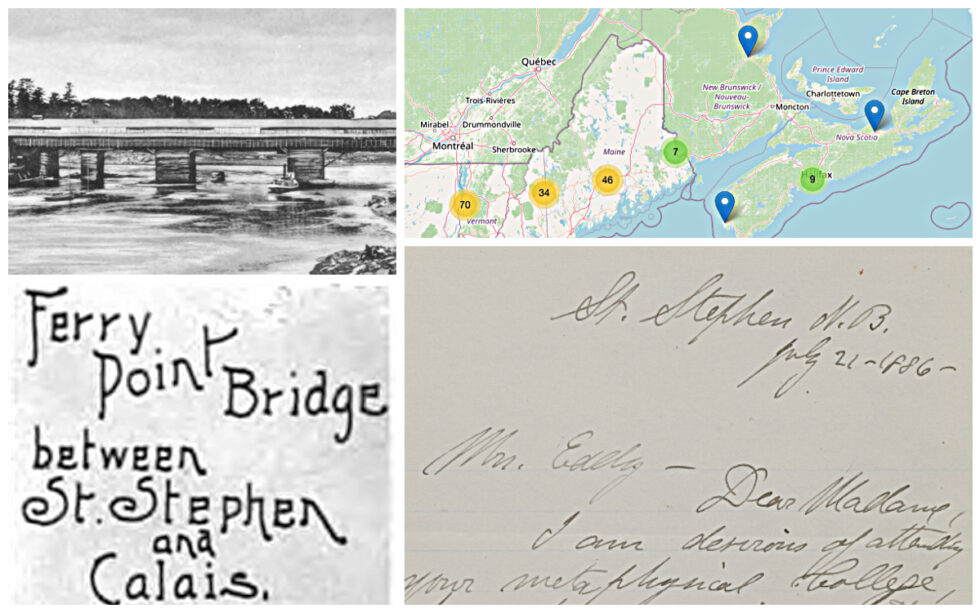 Québec
Trois-Rivières
Mirabel
Drummondville
Montréal
Sherbrooke
Maine
Vermont
New Brunswick /
Nouveau-
Brunswick
Prince Edward
Island
Charlottetown
Moncton
Cape Breton
Island
Nova Scotia
70
34
46
7
9
Ferry
Point
Bridge
between
St. Stephen
and
Calais.
St. Stephen N.B.
July 21-1886-
Mrs. Eddy-
Dear Madame,
I am desirous of attending
your metaphysical College,